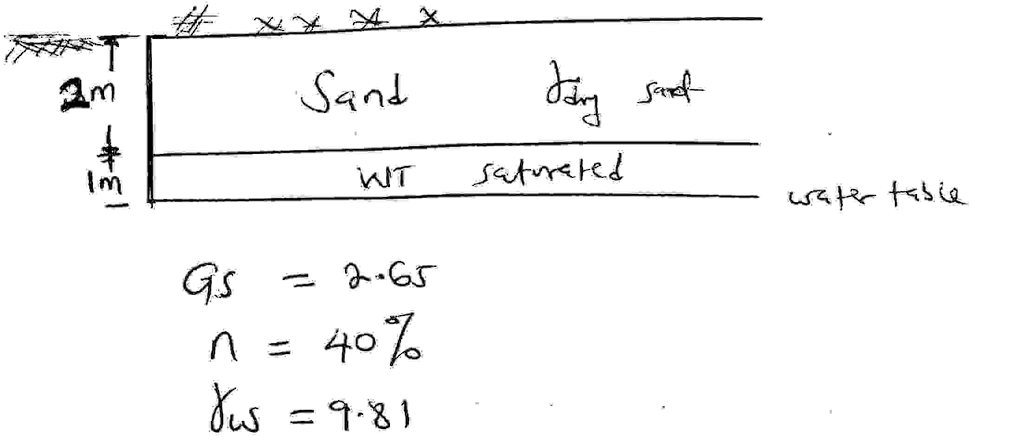 2m
Sand γdry sand
1m
WT saturated
water table
Gs = 2.65
n = 40%
γw = 9.81